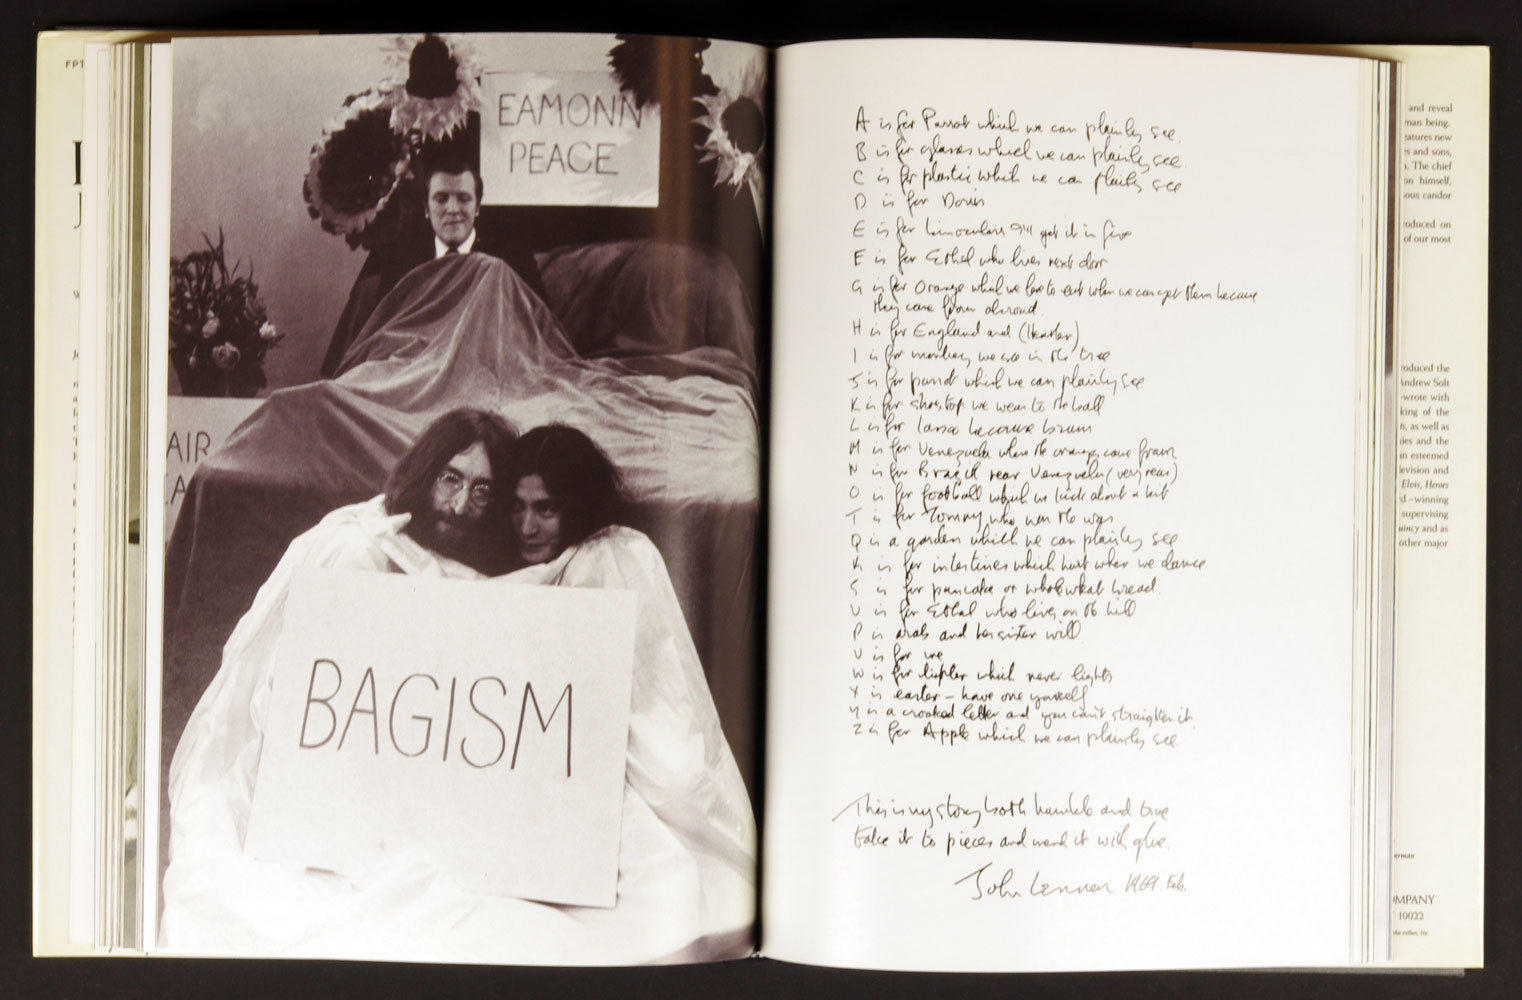 FPT
EAMONN
PEACE
AIR
BAGISM
A is for Parrot which we can plainly see.
B is for glasses which we can plainly see.
C is for plastic which we can plainly see
D is for Doris
E is for binoculars I'll get it in five
F is for Ethel who lives next door
G is for Orange which we love to eat when we can get them because
they come from abroad.
H is for England and (Heather)
I is for monkey we see in the tree
J is for parrot which we can plainly see
K is for shoetop we wear to the ball
L is for lance because brown
M is for Venezuela where the oranges come from
N is for Brazil near Venezuela (very near)
O is for football which we kick about a bit
T is for Tommy who won the war
Q is a garden which we can plainly see
R is for intestines which hurt when we dance
S is for pancake or whole wheat bread.
U is for Ethel who lives on the hill
P is arab and her sister will
V is for me
W is for lighter which never lights
X is easter – have one yourself
Y is a crooked letter and you can't straighten it
Z is for Apple which we can plainly see.
This is my story both humble and true
take it to pieces and mend it with glue.
John Lennon 1969. Feb.
and reveal
man being.
eatures new
s and sons,
. The chief
on himself,
ous candor
roduced on
of our most
roduced the
Andrew Solt
-wrote with
king of the
as well as
ies and the
an esteemed
levision and
Elvis, Heroes
d–winning
supervising
uincy and as
other major
erman
OMPANY
10022